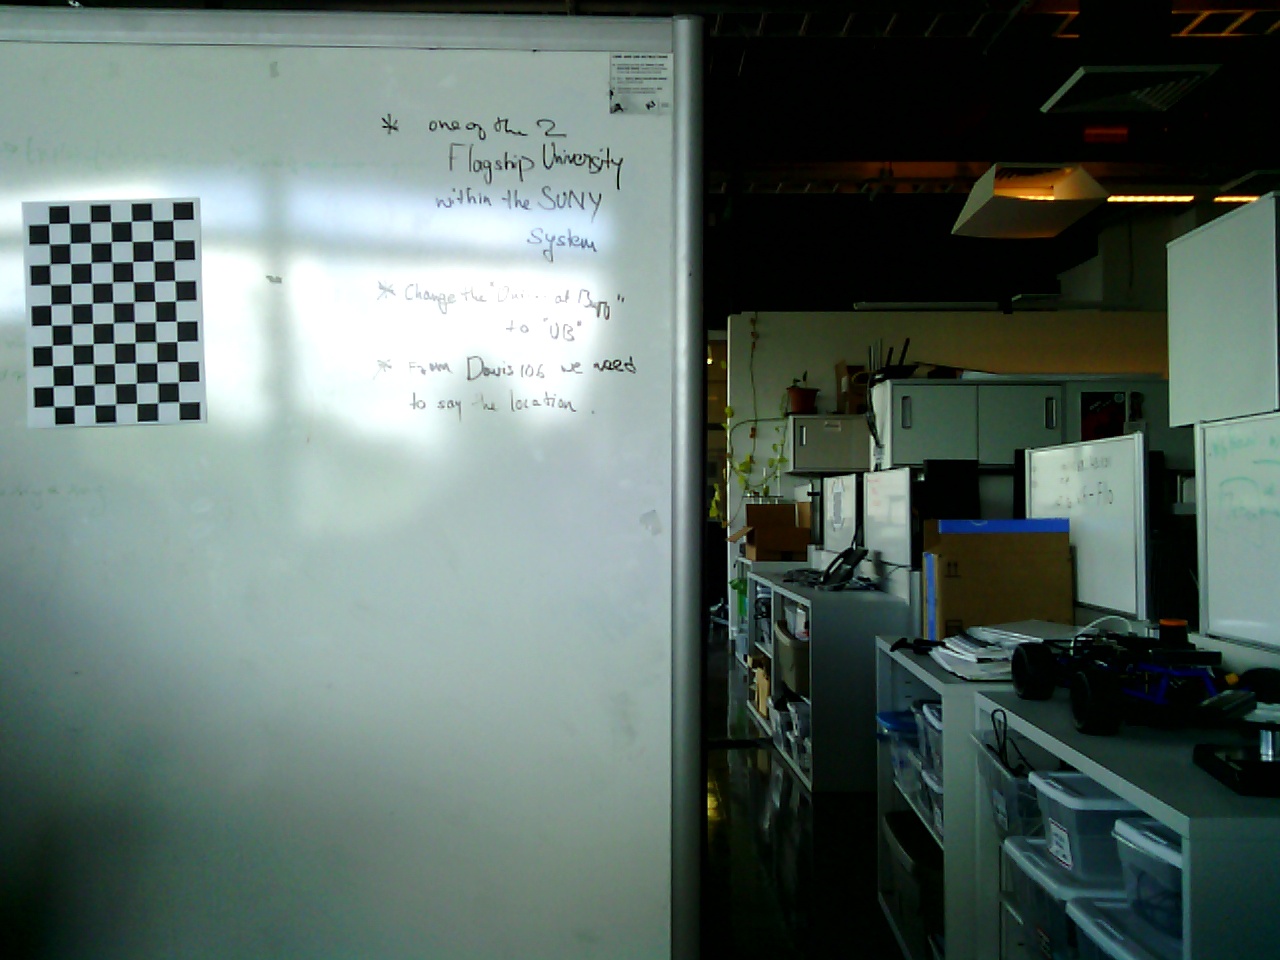 * one of the 2
Flagship University
within the SUNY
System
* Change the "Uni... at Buff"
to "UB"
* From Davis 106 we need
to say the location.